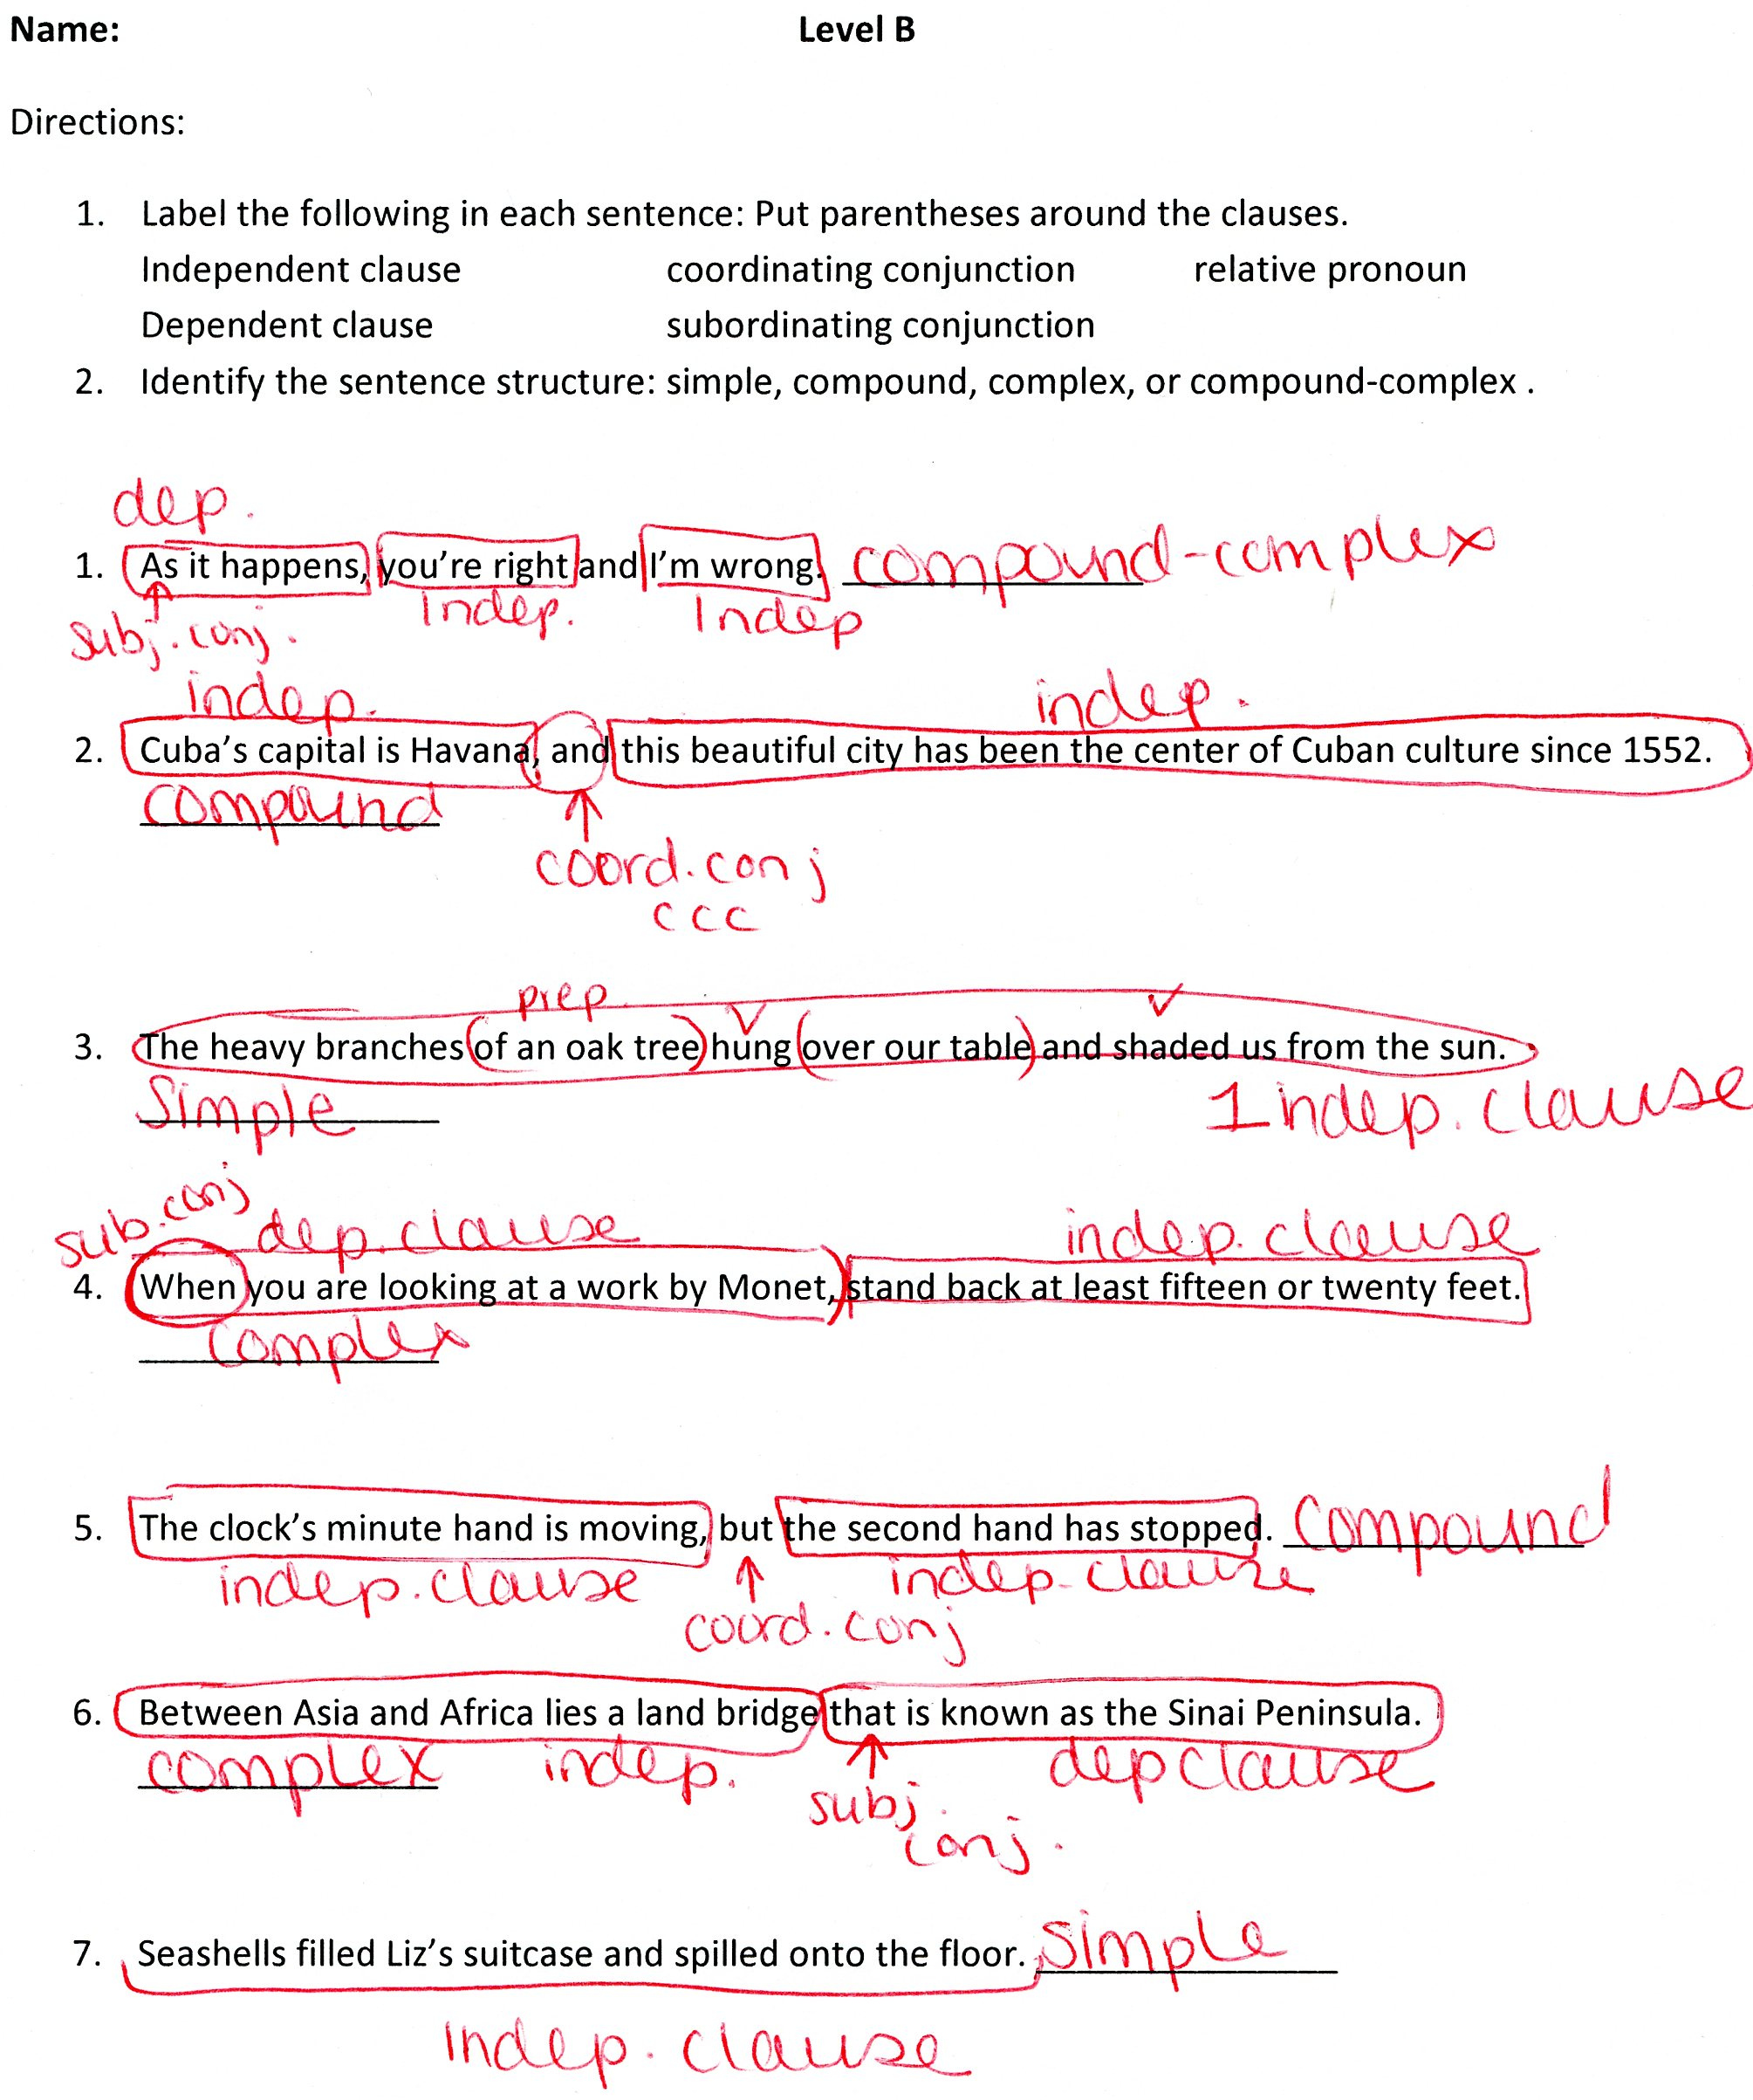 Name: Level B
Directions:
1. Label the following in each sentence: Put parentheses around the clauses.
Independent clause coordinating conjunction relative pronoun
Dependent clause subordinating conjunction
2. Identify the sentence structure: simple, compound, complex, or compound-complex .
dep.
1. As it happens, you're right and I'm wrong. compound-complex
subj. conj. Indep. Indep
indep. indep.
2. Cuba's capital is Havana, and this beautiful city has been the center of Cuban culture since 1552.
compound
coord. conj
ccc
prep v v
3. The heavy branches of an oak tree hung over our table and shaded us from the sun.
Simple 1 indep. clause
sub. conj dep. clause indep. clause
4. When you are looking at a work by Monet, stand back at least fifteen or twenty feet.
Complex
5. The clock's minute hand is moving, but the second hand has stopped. Compound
indep. clause indep. clause
coord. conj
6. Between Asia and Africa lies a land bridge that is known as the Sinai Peninsula.
complex indep. dep clause
subj.
conj.
7. Seashells filled Liz's suitcase and spilled onto the floor. Simple
Indep. clause